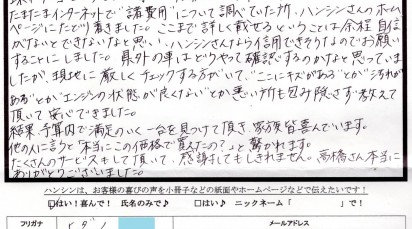 たまたまインターネットで"諸費用"について調べていた所、ハンシンさんのホーム
ページにたどり着きました。ここまで詳しく載せるということは余程自信
がないとできないなと思い、ハンシンさんなら信用できそうなのでお願い
することにしました。県外の車はどうやって確認するのかなと思っていま
したが、現地に厳しくチェックする方がいて、"ここにキズがある"とか"汚れが
ある"とか"エンジンの状態が良くない"とか悪い所も包み隠さず教えて
頂いて安心できました。
結果予算内で満足のいく一台を見つけて頂き、家族皆喜んでいます。
他の人に言うと"本当にこの価格で買えたの?"と驚かれます。
たくさんのサービスもして頂いて、感謝してもしきれません。高橋さん本当に
ありがとうございました。
ハンシンは、お客様の喜びの声を小冊子などの紙面やホームページなどで伝えたいです!
はい!喜んで! 氏名のみで♪ □はい♪ ニックネーム「 」で!
フリガナ
メールアドレス